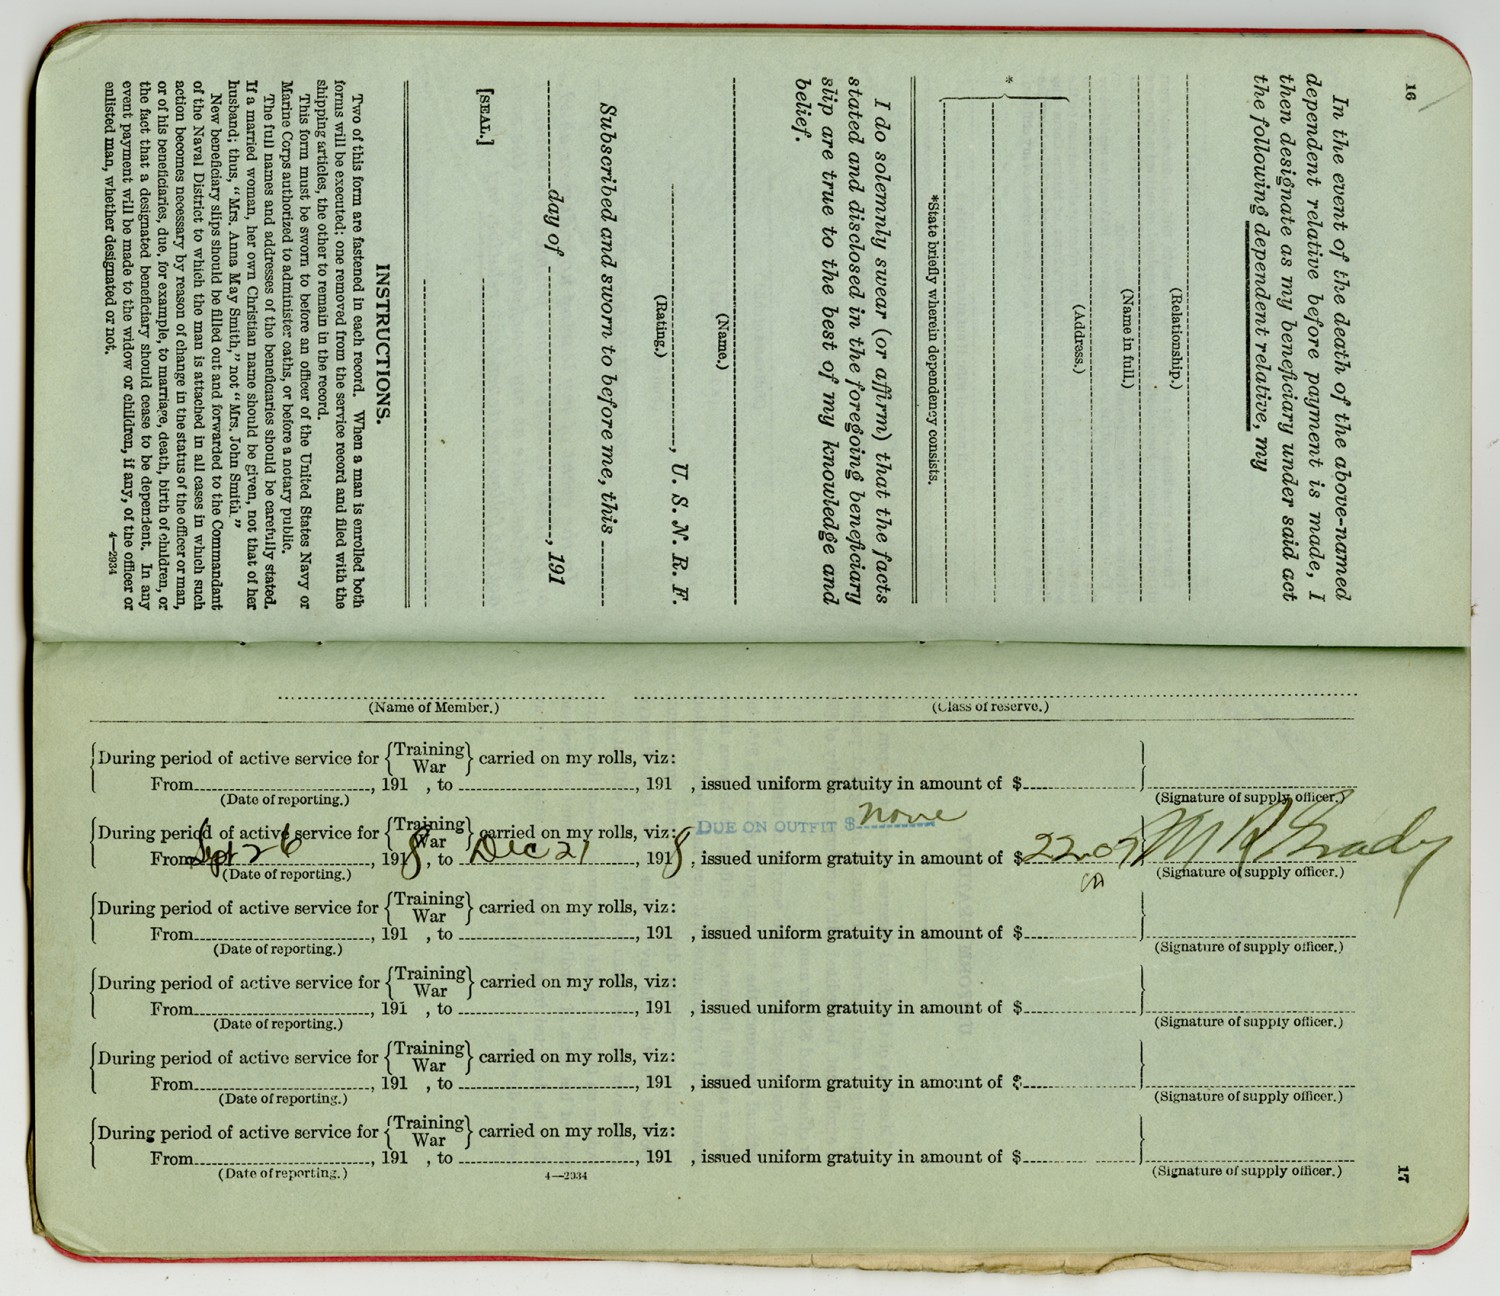 16
In the event of the death of the above-named
dependent relative before payment is made, I
then designate as my beneficiary under said act
the following dependent relative, my
(Relationship.)
(Name in full.)
(Address.)
*
*State briefly wherein dependency consists.
I do solemnly swear (or affirm) that the facts
stated and disclosed in the foregoing beneficiary
slip are true to the best of my knowledge and
belief.
(Name.)
, U. S. N. R. F.
(Rating.)
Subscribed and sworn to before me, this
day of , 191
[SEAL.]
INSTRUCTIONS.
Two of this form are fastened in each record. When a man is enrolled both
forms will be executed; one removed from the service record and filed with the
shipping articles, the other to remain in the record.
This form must be sworn to before an officer of the United States Navy or
Marine Corps authorized to administer oaths, or before a notary public.
The full names and addresses of the beneficiaries should be carefully stated.
If a married woman, her own Christian name should be given, not that of her
husband; thus, "Mrs. Anna May Smith," not "Mrs. John Smith."
New beneficiary slips should be filled out and forwarded to the Commandant
of the Naval District to which the man is attached in all cases in which such
action becomes necessary by reason of change in the status of the officer or man,
or of his beneficiaries, due, for example, to marriage, death, birth of children, or
the fact that a designated beneficiary should cease to be dependent. In any
event payment will be made to the widow or children, if any, of the officer or
enlisted man, whether designated or not.
4—2934
(Name of Member.) (Class of reserve.)
During period of active service for {Training War} carried on my rolls, viz:
From , 191 , to , 191 , issued uniform gratuity in amount of $
(Date of reporting.) (Signature of supply officer.)
During period of active service for {Training War} carried on my rolls, viz: DUE ON OUTFIT $ none
From Sept 26, 1918, to Dec 21, 1918, issued uniform gratuity in amount of $ 22.07 M R Grady
(Date of reporting.) (Signature of supply officer.)
During period of active service for {Training War} carried on my rolls, viz:
From , 191 , to , 191 , issued uniform gratuity in amount of $
(Date of reporting.) (Signature of supply officer.)
During period of active service for {Training War} carried on my rolls, viz:
From , 191 , to , 191 , issued uniform gratuity in amount of $
(Date of reporting.) (Signature of supply officer.)
During period of active service for {Training War} carried on my rolls, viz:
From , 191 , to , 191 , issued uniform gratuity in amount of $
(Date of reporting.) (Signature of supply officer.)
During period of active service for {Training War} carried on my rolls, viz:
From , 191 , to , 191 , issued uniform gratuity in amount of $
(Date of reporting.) (Signature of supply officer.)
4—2934
17